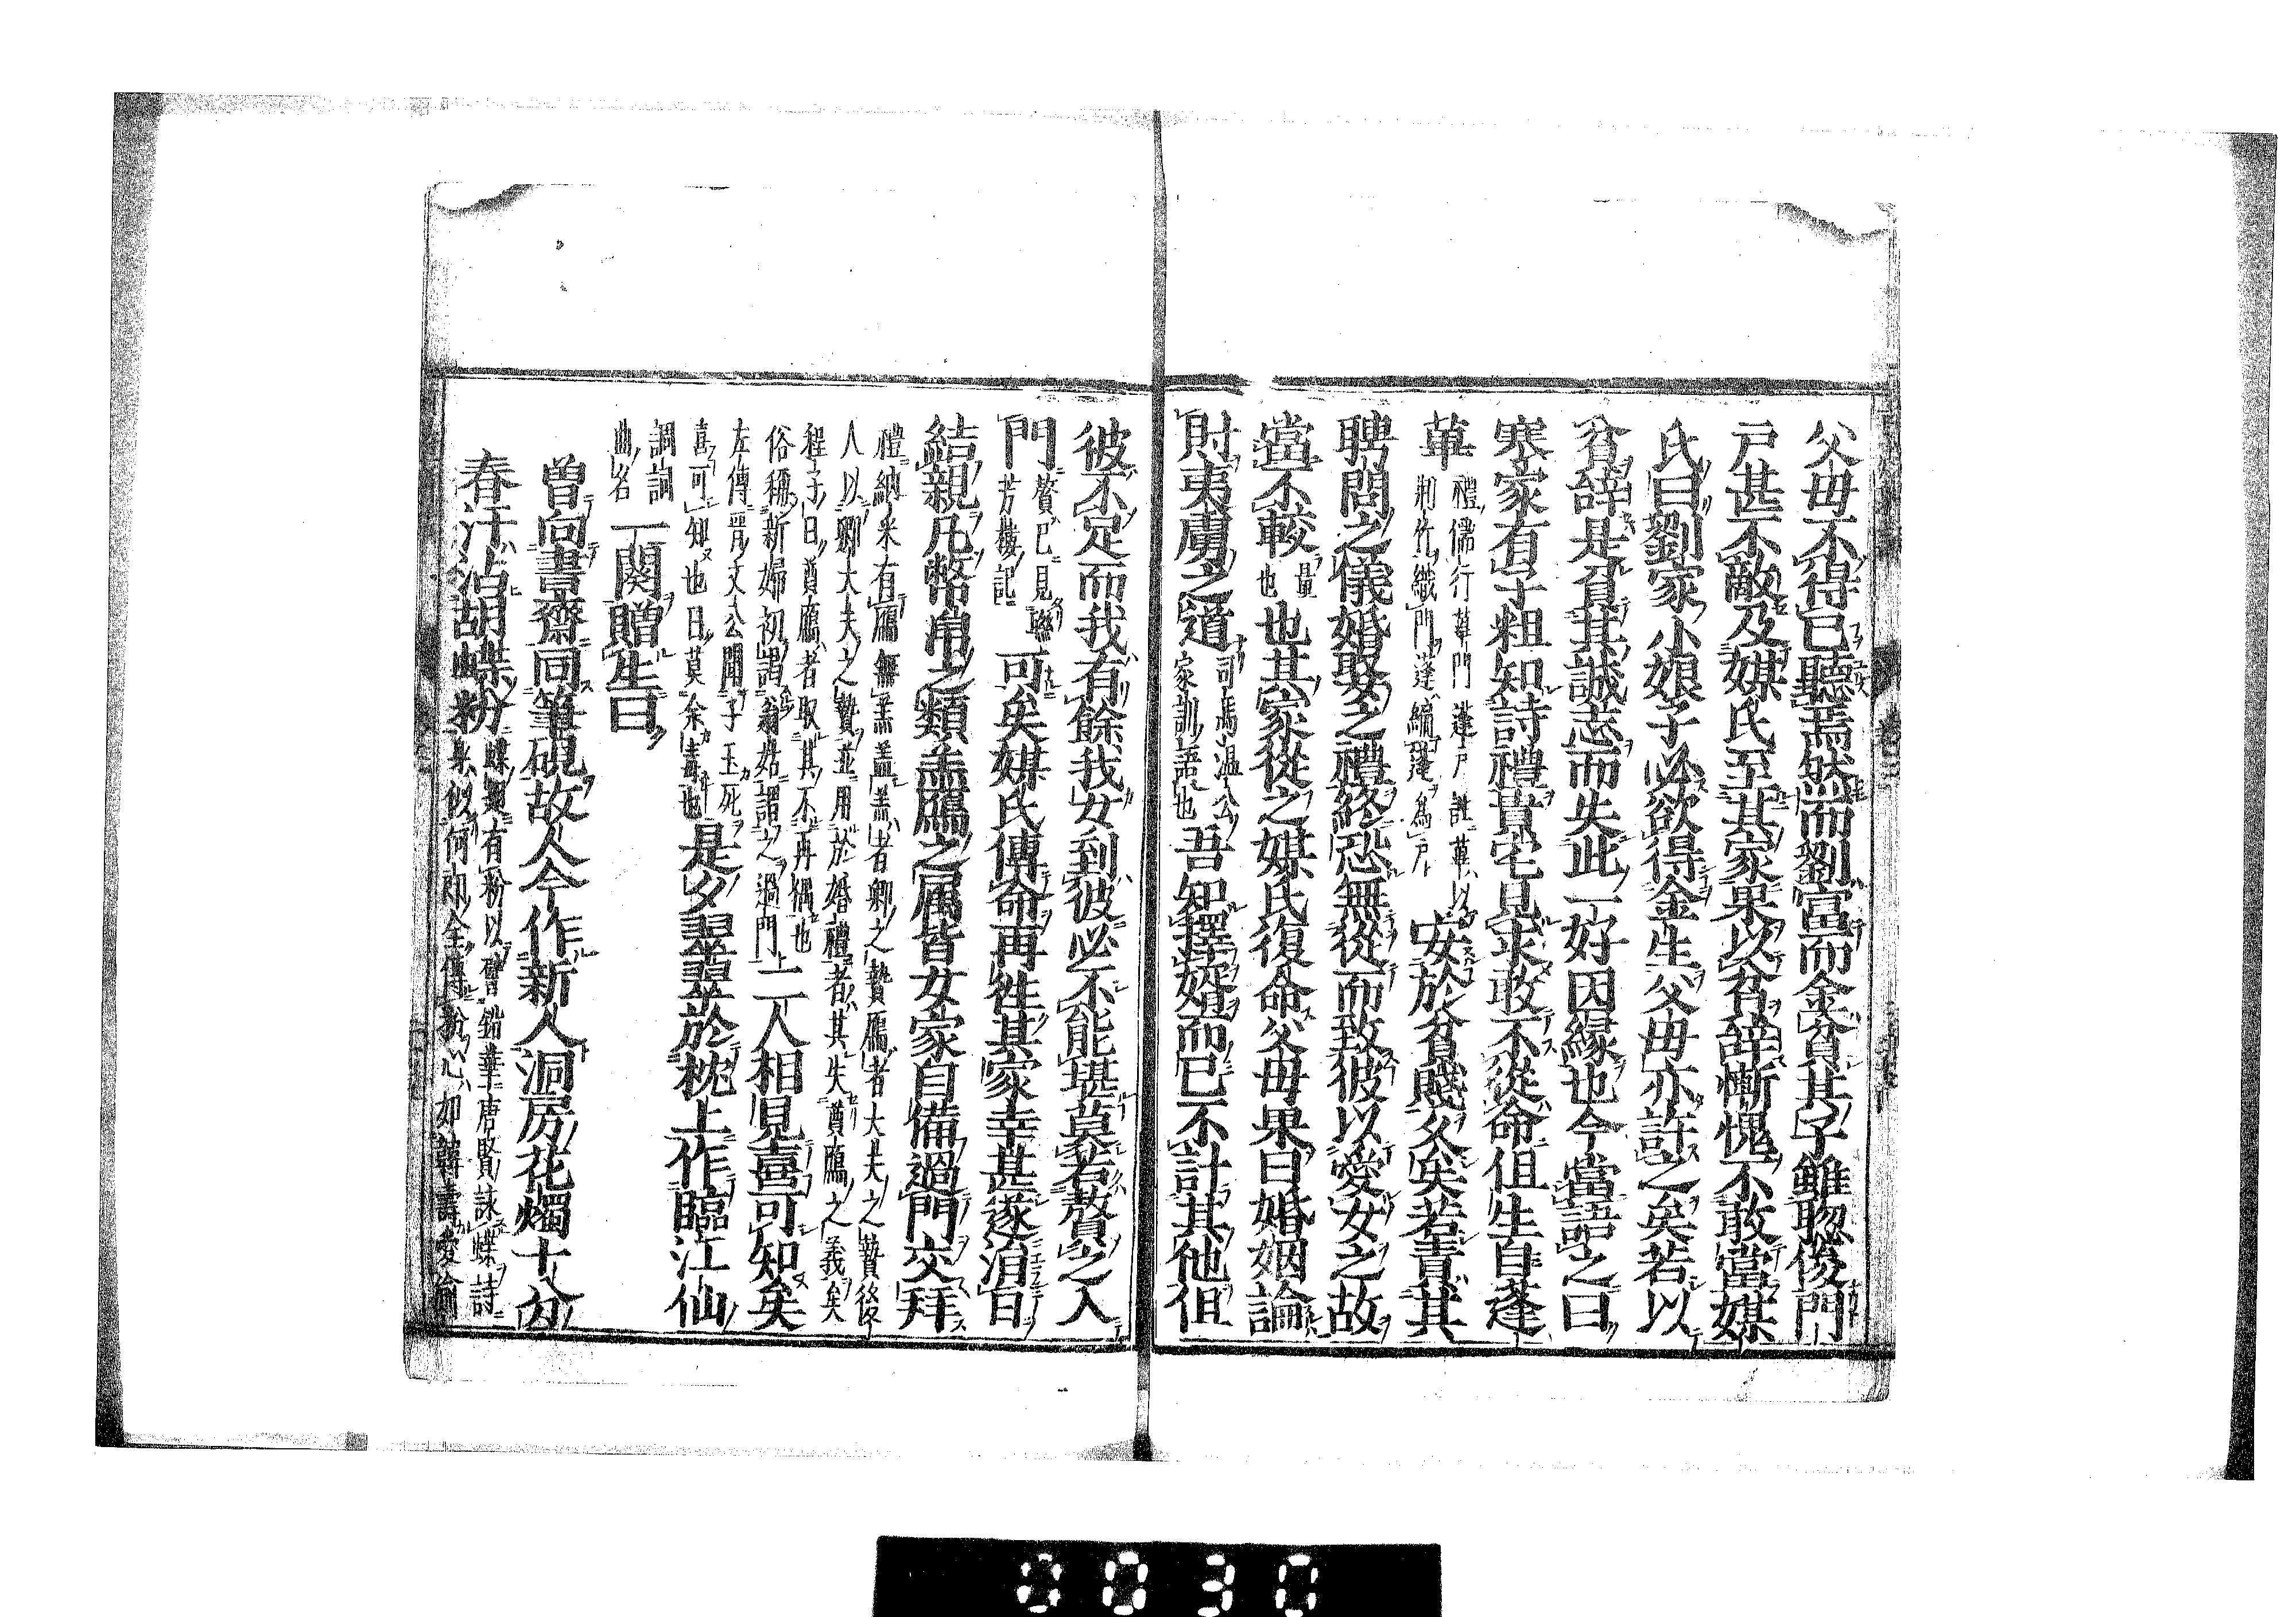 父母不得已聽焉然而劉富而金貧其子雖聡俊門
戸甚不敵及媒氏至其家果以貧辞慚愧不敢當媒
氏曰劉家小娘子必欲得金生父母亦許之矣若以
貧辞是負其誠志而失此一好因縁也今當語之曰
寒家有子粗知詩禮貴宅見求敢不從命但生自蓬
蓽
禮儒行蓽門蓬戸註蓽以
荊竹織門蓬編蓬為戸
安於貧賤久矣若責其
聘問之儀婚娶之禮終恐無從而致彼以愛女之故
當不較
量
也
也其家從之媒氏復命父母果曰婚姻論
財夷虜之道
司馬温公
家訓語也
吾知擇婿而已不計其他但
彼不足而我有餘我女到彼必不能堪莫若贅之入
門
贅已見聯
芳樓記
可矣媒氏傳命再徃其家幸甚遂涓日
結親凡幣帛之類羔鴈之属皆女家自備過門交拜
禮納采有鴈無羔盖羔者卿之贄鴈者大夫之贄後
人以卿大夫之贄並用於婚禮者其失奠鴈之義矣
程子曰奠鴈者取其不再耦也
俗稱新婦初謁翁姑謂之過門
二人相見喜可知矣
左傳晋文公聞子玉死
喜可知也曰莫余毒也
是夕翠翠於枕上作臨江仙
調詞
曲名
一闋贈生曰
曽向書齋同筆硯故人今作新人洞房花燭十分
春汗沾胡蝶粉
蝶翅有粉以譬鉛華唐賢詠蝶詩
身似何郎全傅粉心如韓壽愛偷
0030